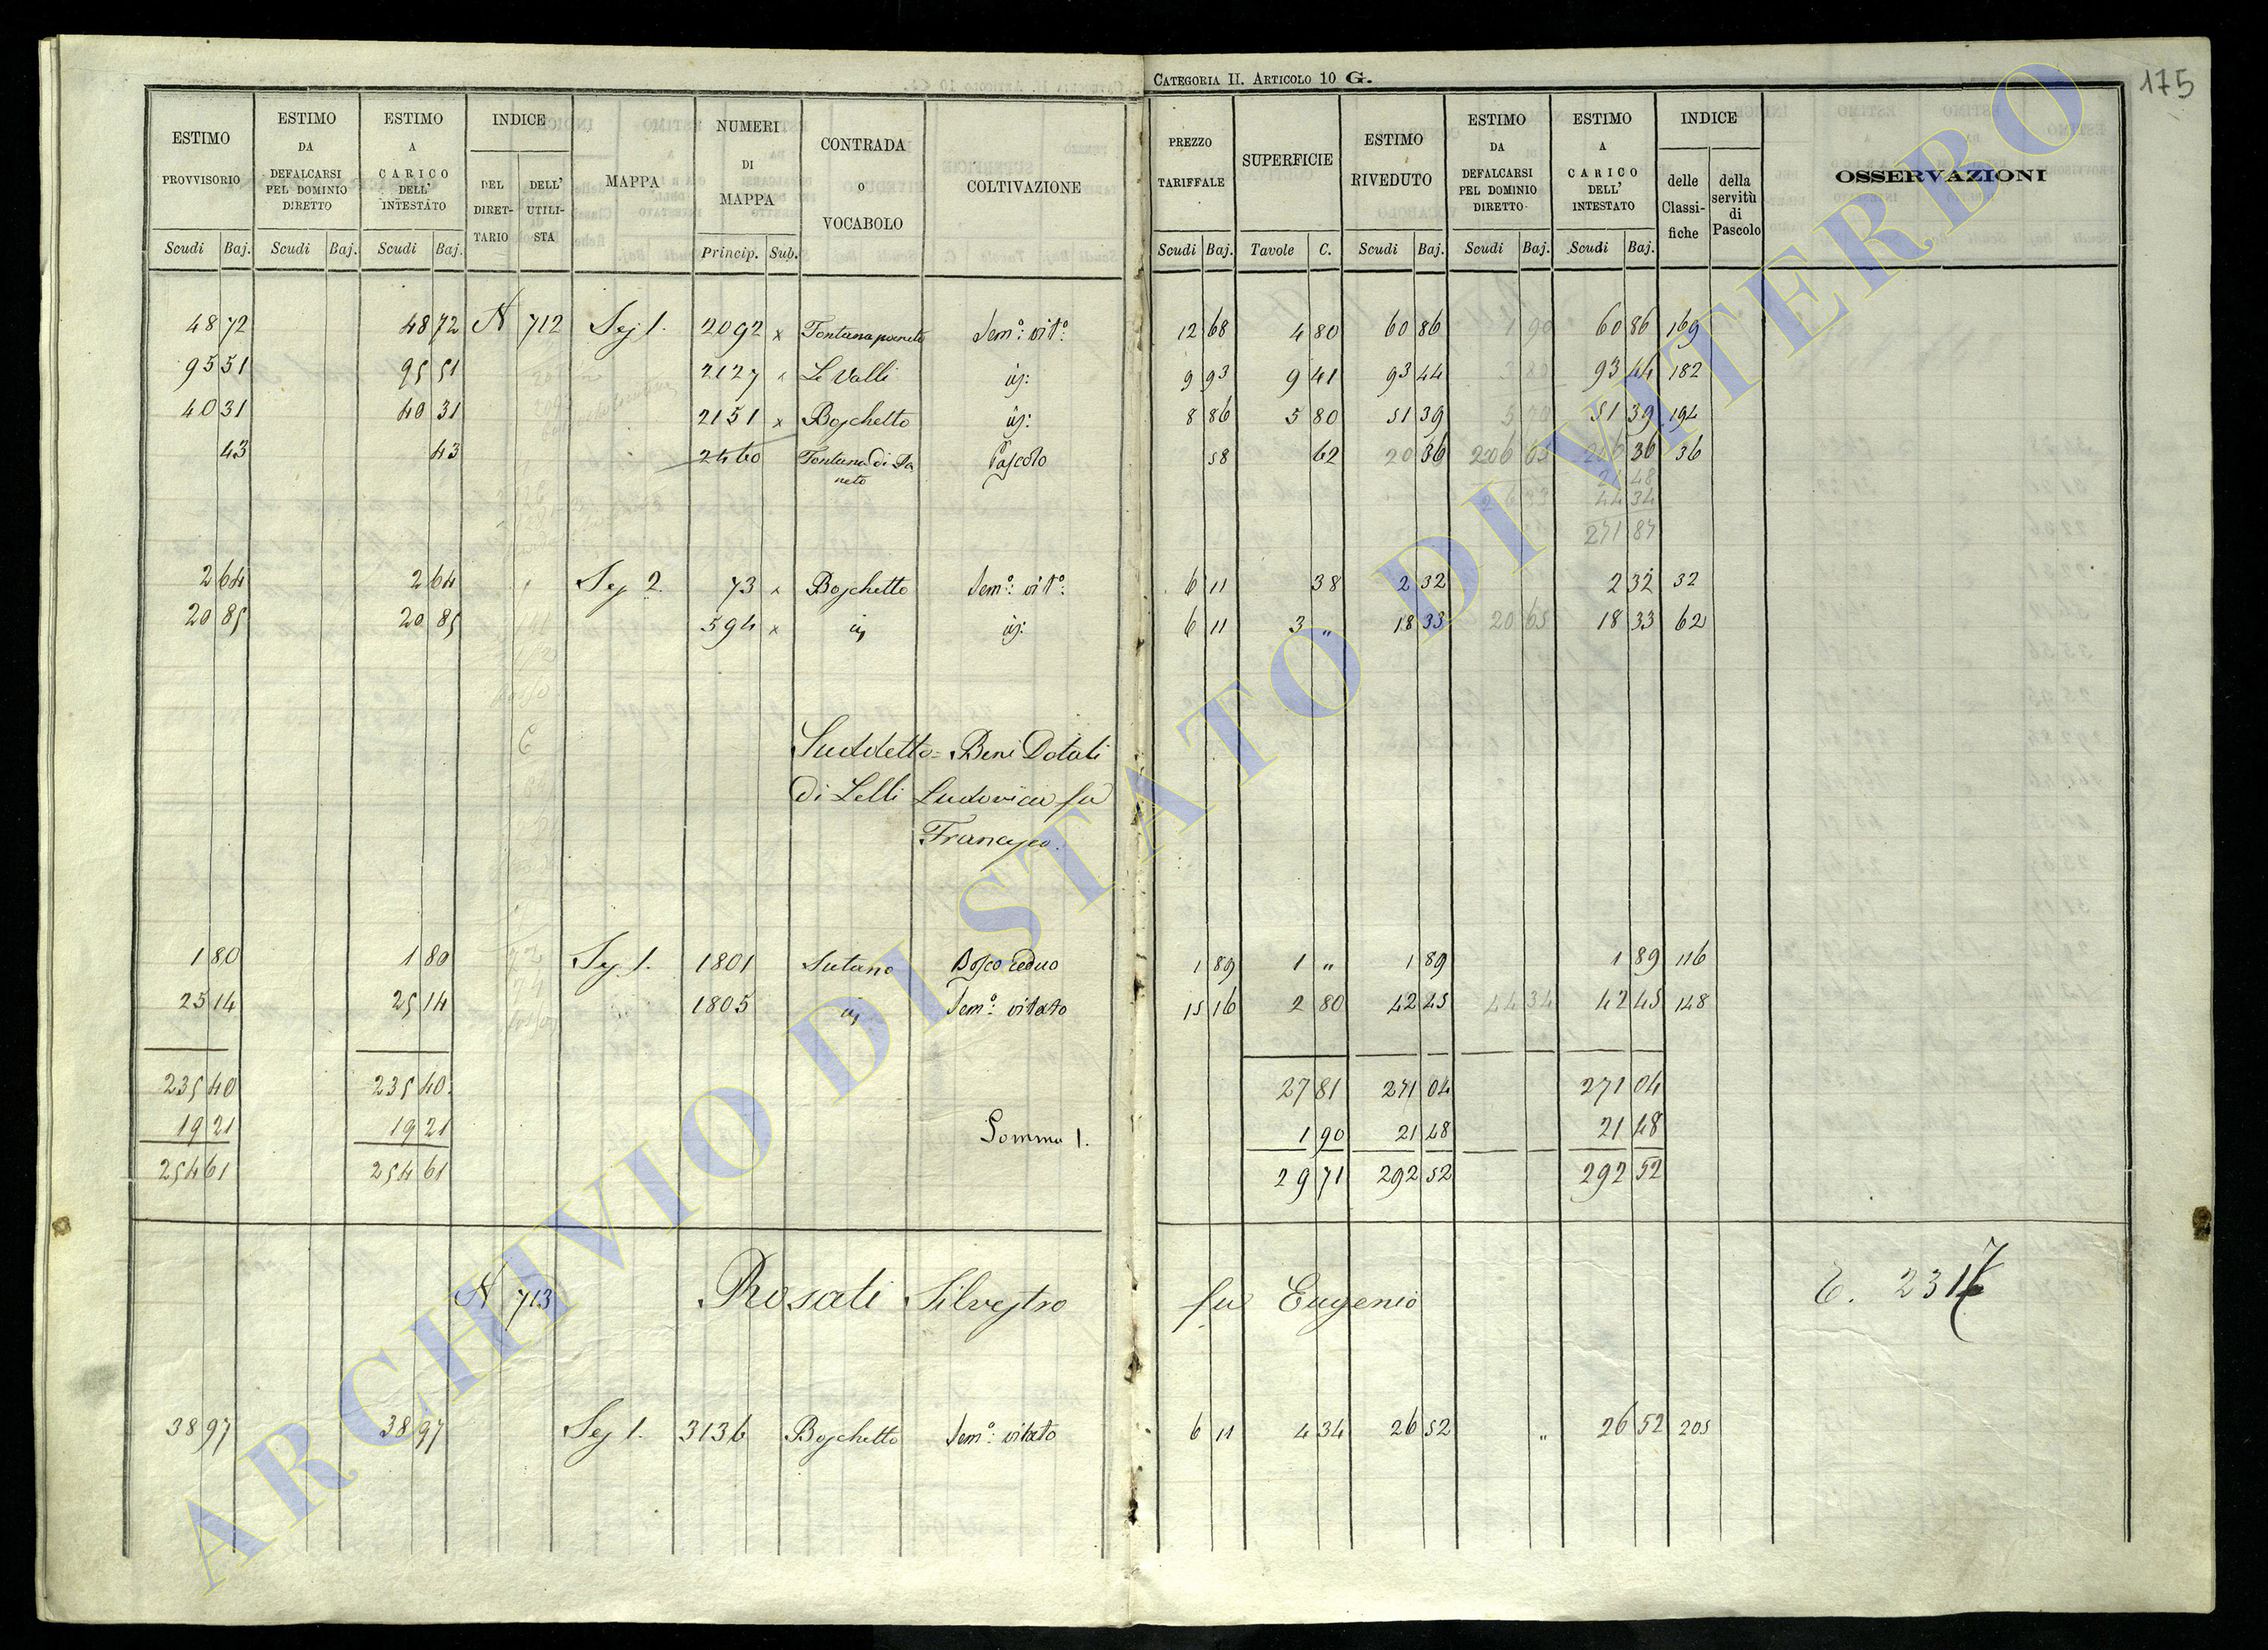 CATEGORIA II. ARTICOLO 10 G.
175
ESTIMO PROVVISORIO Scudi Baj.
ESTIMO DA DEFALCARSI PEL DOMINIO DIRETTO Scudi Baj.
ESTIMO A CARICO DELL' INTESTATO Scudi Baj.
INDICE DEL DIRETTARIO DELL' UTILISTA
MAPPA
NUMERI DI MAPPA Princip. Sub.
CONTRADA o VOCABOLO
COLTIVAZIONE
PREZZO TARIFFALE Scudi Baj.
SUPERFICIE Tavole C.
ESTIMO RIVEDUTO Scudi Baj.
ESTIMO DA DEFALCARSI PEL DOMINIO DIRETTO Scudi Baj.
ESTIMO A CARICO DELL' INTESTATO Scudi Baj.
INDICE delle Classifiche della servitù di Pascolo
OSSERVAZIONI
48 72 48 72 N 712 Sez 1. 2092 x Sem.º vit.º 12 68 4 80 60 86 1 90 60 86 169
95 51 95 51 2127 x Le Valli id: 9 93 9 41 93 44 93 44 182
40 31 40 31 2151 x Boschetto id: 8 86 5 80 51 39 51 39 194
43 43 2460 Fontana di Pa Pascolo 58 62 20 36 206 65 36 36
neto
21 48
44 34
271 87
2 64 2 64 Sez 2. 73 x Boschetto Sem.º vit.º 6 11 38 2 32 2 32 32
20 85 20 85 594 x id id: 6 11 3 " 18 33 20 65 18 33 62
Suddetto = Beni Dotali
di Lelli Ludovica fu
Francesco.
1 80 1 80 Sez. 1. 1801 Sutano Bosco ceduo 1 89 1 " 1 89 1 89 116
25 14 25 14 1805 id Sem.º vitato 15 16 2 80 42 45 44 34 42 45 148
235 40 235 40. 27 81 271 04 271 04
19 21 19 21 Somma 1. 1 90 21 48 21 48
254 61 254 61 29 71 292 52 292 52
N 713 Rosati Silvestro fu Eugenio
38 97 38 97 Sez 1. 3136 Boschetto Sem.º vitato 6 11 4 34 26 52 " 26 52 205
ARCHIVIO DI STATO DI VITERBO